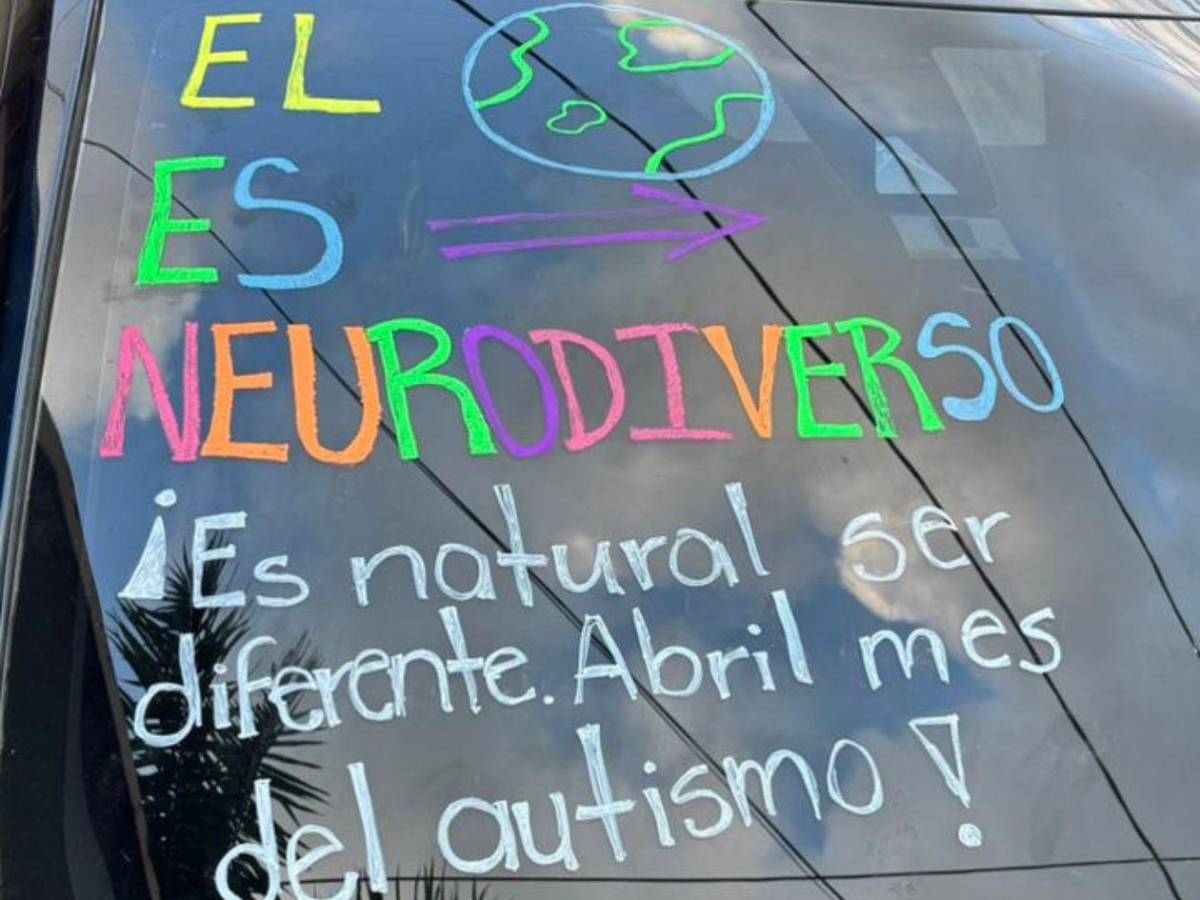 EL
ES
NEURODIVERSO
¡Es natural ser
diferente. Abril mes
del autismo!